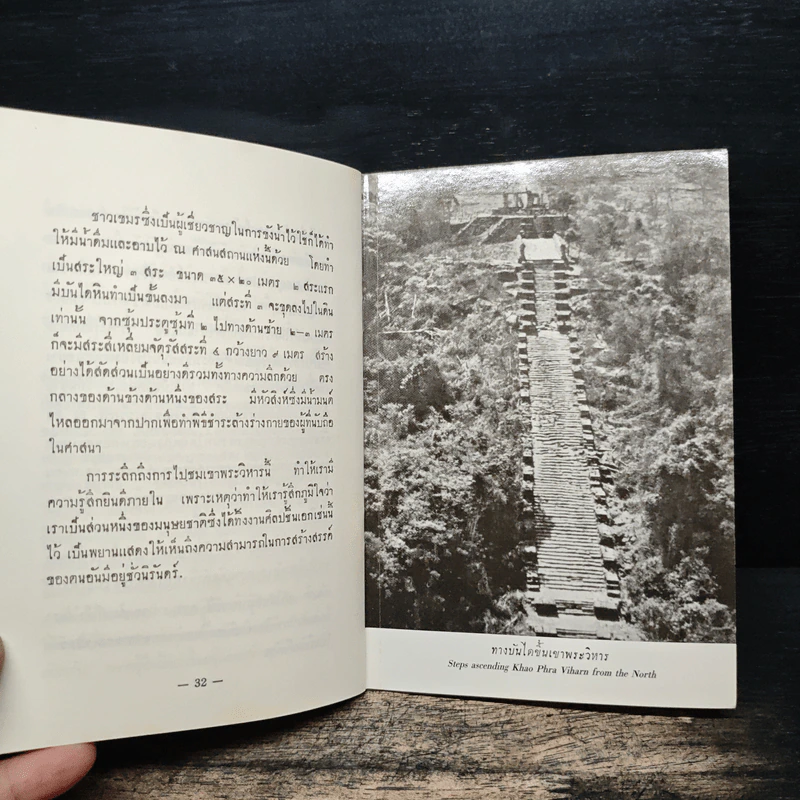 ชาวเขมรซึ่งเป็นผู้เชี่ยวชาญในการขังน้ำไว้ใช้ก็ได้ทำ
ให้มีน้ำดื่มและอาบไว้ ณ ศาสนสถานแห่งนี้ด้วย โดยทำ
เป็นสระใหญ่ ๓ สระ ขนาด ๓๕ × ๒๐ เมตร ๒ สระแรก
มีบันไดหินทำเป็นชั้นลงมา แต่สระที่ ๓ จะขุดลงไปในดิน
เท่านั้น จากซุ้มประตูซุ้มที่ ๒ ไปทางด้านซ้าย ๒-๓ เมตร
ก็จะมีสระสี่เหลี่ยมจัตุรัสสระที่ ๔ กว้างยาว ๙ เมตร สร้าง
อย่างได้สัดส่วนเป็นอย่างดีรวมทั้งทางความลึกด้วย ตรง
กลางของด้านข้างด้านหนึ่งของสระ มีหัวสิงห์ซึ่งมีน้ำมนต์
ไหลออกมาจากปากเพื่อทำพิธีชำระล้างร่างกายของผู้ที่นับถือ
ในศาสนา
การระลึกถึงการไปชมเขาพระวิหารนี้ ทำให้เรามี
ความรู้สึกยินดีภายใน เพราะเหตุว่าทำให้เรารู้สึกภูมิใจว่า
เราเป็นส่วนหนึ่งของมนุษยชาติซึ่งได้ทิ้งงานศิลปชิ้นเอกเช่นนี้
ไว้ เป็นพยานแสดงให้เห็นถึงความสามารถในการสร้างสรรค์
ของคนอันมีอยู่ชั่วนิรันดร์.
— 32 —
ทางบันไดขึ้นเขาพระวิหาร
Steps ascending Khao Phra Viharn from the North